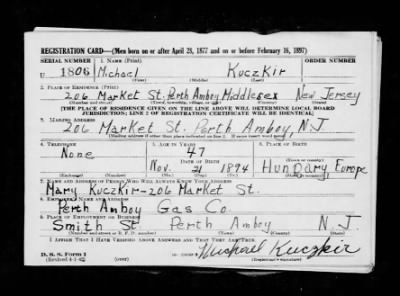 REGISTRATION CARD—(Men born on or after April 28, 1877 and on or before February 16, 1897)
SERIAL NUMBER 1. NAME (Print) ORDER NUMBER
U 1806 Michael Kuczkir
(First) (Middle) (Last)
2. PLACE OF RESIDENCE (Print)
206 Market St. Perth Amboy Middlesex New Jersey
(Number and street) (Town, township, village, or city) (County) (State)
[THE PLACE OF RESIDENCE GIVEN ON THE LINE ABOVE WILL DETERMINE LOCAL BOARD
JURISDICTION; LINE 2 OF REGISTRATION CERTIFICATE WILL BE IDENTICAL]
3. MAILING ADDRESS
206 Market St. Perth Amboy, N.J
[Mailing address if other than place indicated on line 2. If same insert word same]
4. TELEPHONE 5. AGE IN YEARS 6. PLACE OF BIRTH
None 47
DATE OF BIRTH (Town or county)
Nov. 21 1894 Hungary Europe
(Mo.) (Day) (Yr.) (State or country)
7. NAME AND ADDRESS OF PERSON WHO WILL ALWAYS KNOW YOUR ADDRESS
Mary Kuczkir-206 Market St.
8. EMPLOYER'S NAME AND ADDRESS
Perth Amboy Gas Co
9. PLACE OF EMPLOYMENT OR BUSINESS
Smith St. Perth Amboy N J
(Number and street or R. F. D. number) (Town) (County) (State)
I AFFIRM THAT I HAVE VERIFIED ABOVE ANSWERS AND THAT THEY ARE TRUE.
D. S. S. Form 1
(Revised 4-1-42) Michael Kuczkir
(Registrant's signature)